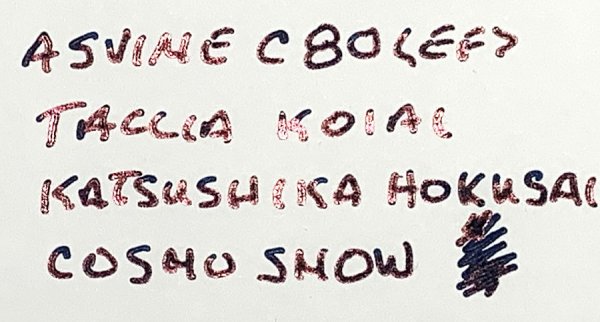 ASVINE C80<EF>
TACCIA KOIAI
KATSUSHIKA HOKUSAI
COSMO SNOW